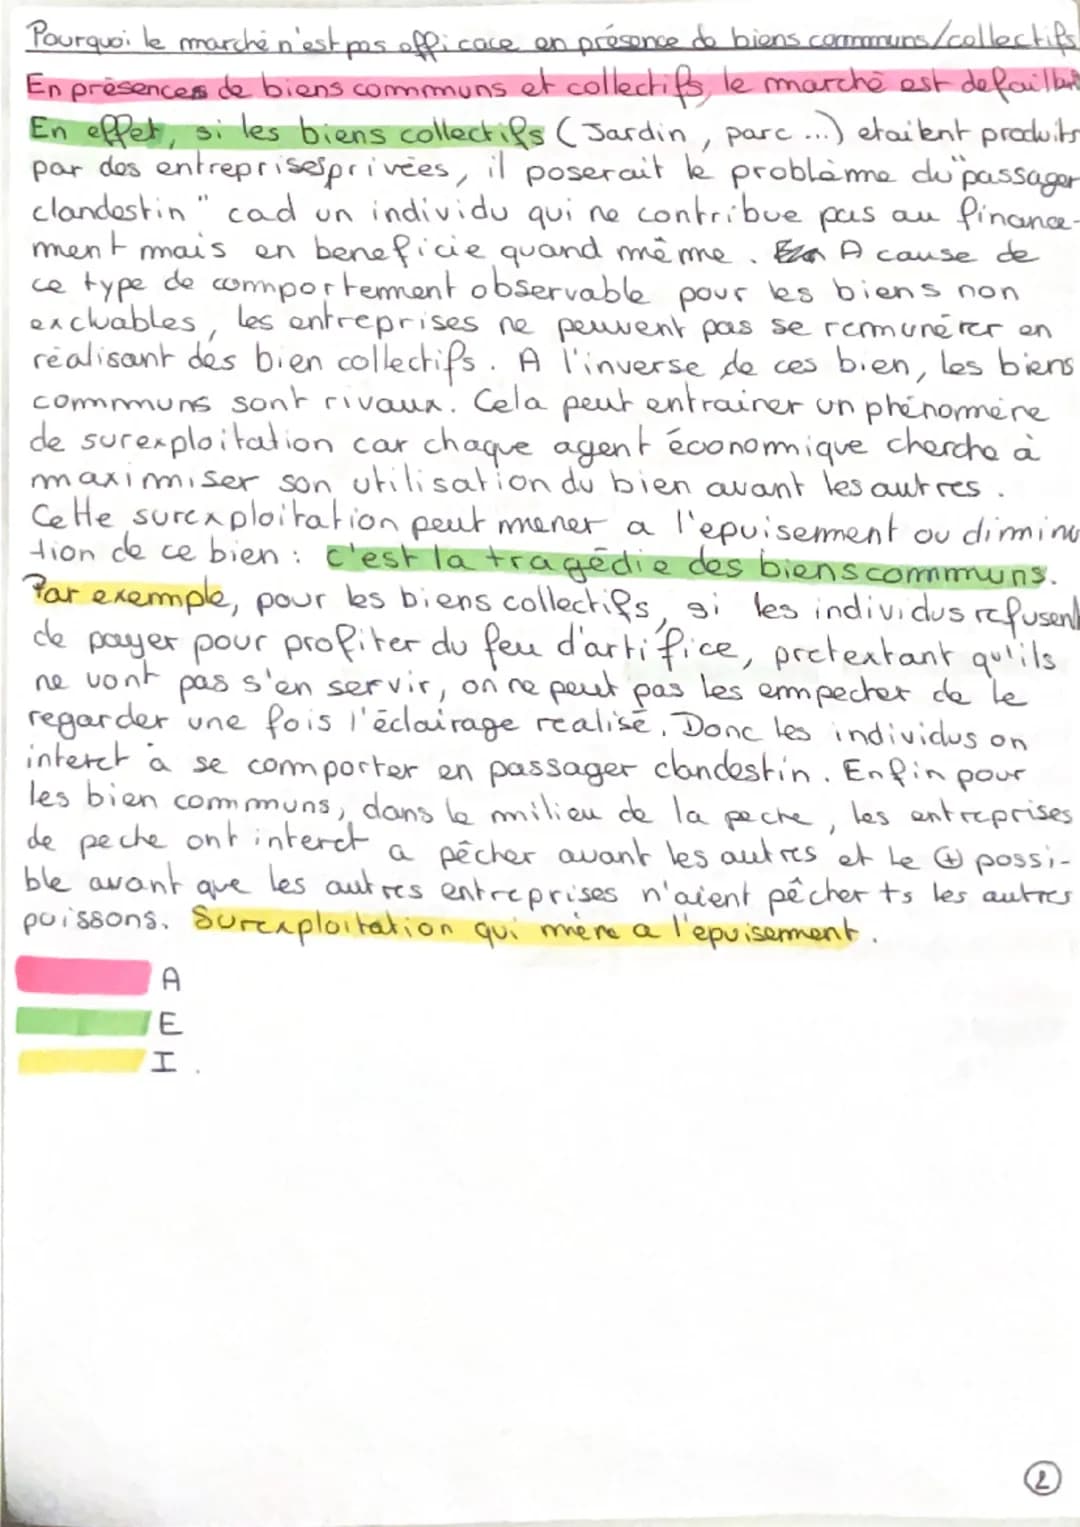 Pourquoi le marché n'est pas efficace en présence de biens communs/collectifs
En présences de biens communs et collectifs, le marché est defaillant
En effet, si les biens collectifs (Jardin, parc ...) etaitent produits
par des entreprises privées, il poserait le problème du "passager
clandestin" cad un individu qui ne contribue pas au finance-
ment mais en beneficie quand même. A cause de
ce type de comportement observable pour les biens non
excluables, les entreprises ne peuvent pas se remunérer en
réalisant des bien collectifs. A l'inverse de ces bien, les biens
communs sont rivaux. Cela peut entrainer un phénomène
de surexploitation car chaque agent économique cherche à
maximiser son utilisation du bien avant les autres.
Cette surexploitation peut mener a l'epuisement ou diminu
tion de ce bien : c'est la tragédie des biens communs.
Par exemple, pour les biens collectifs, si les individus refusent
de payer pour profiter du feu d'artifice, pretextant qu'ils
ne vont pas s'en servir, on ne peut pas les empecher de le
regarder une fois l'éclairage realisé. Donc les individus on
interet à se comporter en passager clandestin. Enfin pour
les bien communs, dans le milieu de la peche, les entreprises
de peche ont interet a pêcher avant les autres et le ⊕ possi-
ble avant que les autres entreprises n'aient pêcher ts les autres
poissons. Surexploitation qui mène a l'epuisement.
A
E
I.
2